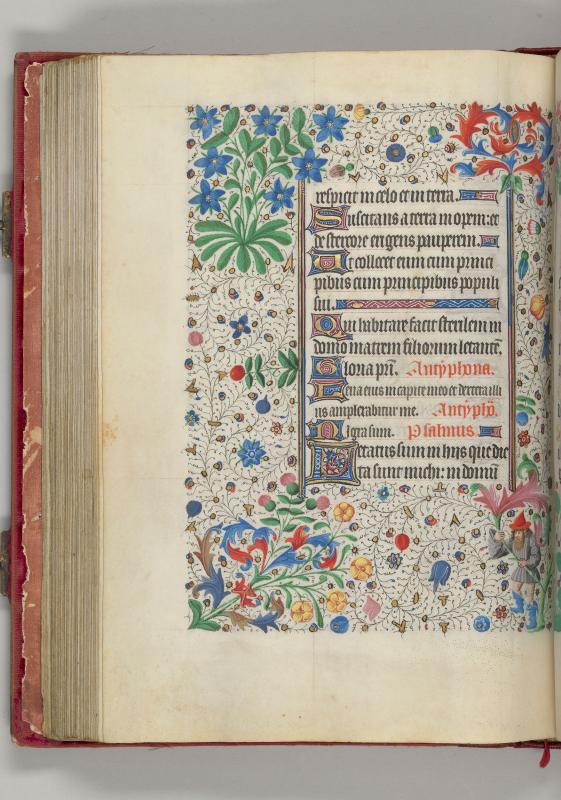 respicit in celo et in terra.
Suscitans a terra inopem: et
de stercore erigens pauperem.
Ut collocet eum cum princi
pibus cum principibus populi
sui.
Qui habitare facit sterilem in
domo matrem filiorum letantē.
Gloria pr̄i. Antyphona.
Leva eius in capite meo et dextera illi
us amplexabitur me. Antypho.
Nigra sum. Psalmus.
Letatus sum in hiis que dic
ta sunt michi: in domū